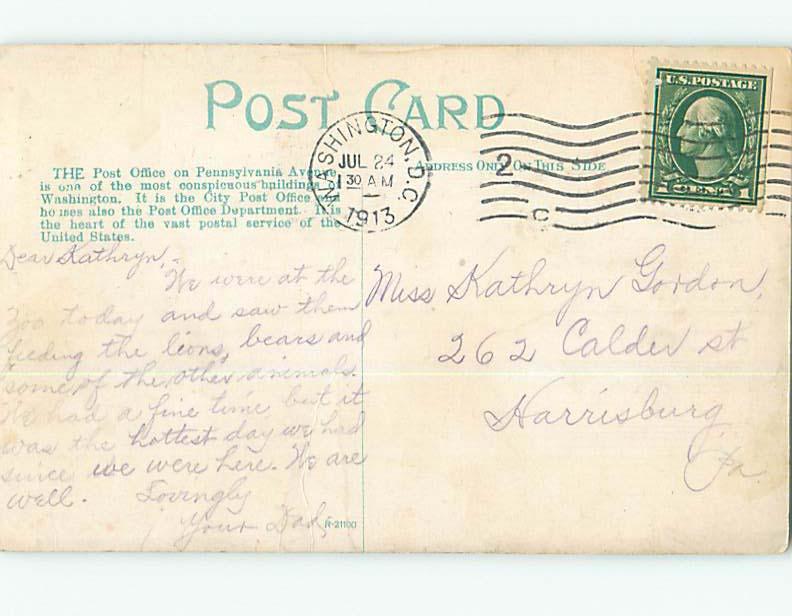 POST CARD
THE Post Office on Pennsylvania Avenue
is one of the most conspicuous buildings in
Washington. It is the City Post Office and
houses also the Post Office Department. It is
the heart of the vast postal service of the
United States.
WASHINGTON, D.C.
JUL 24
1 30 A M
1913
2
C
ADDRESS ONLY ON THIS SIDE
U.S. POSTAGE
1 CENT 1
Dear Kathryn,-
We were at the
Zoo today and saw them
feeding the lions, bears and
some of the other animals.
We had a fine time but it
was the hottest day we had
since we were here. We are
well. Lovingly
Your Dad,
R-21100
Miss Kathryn Gordon,
262 Calder st
Harrisburg
Pa.